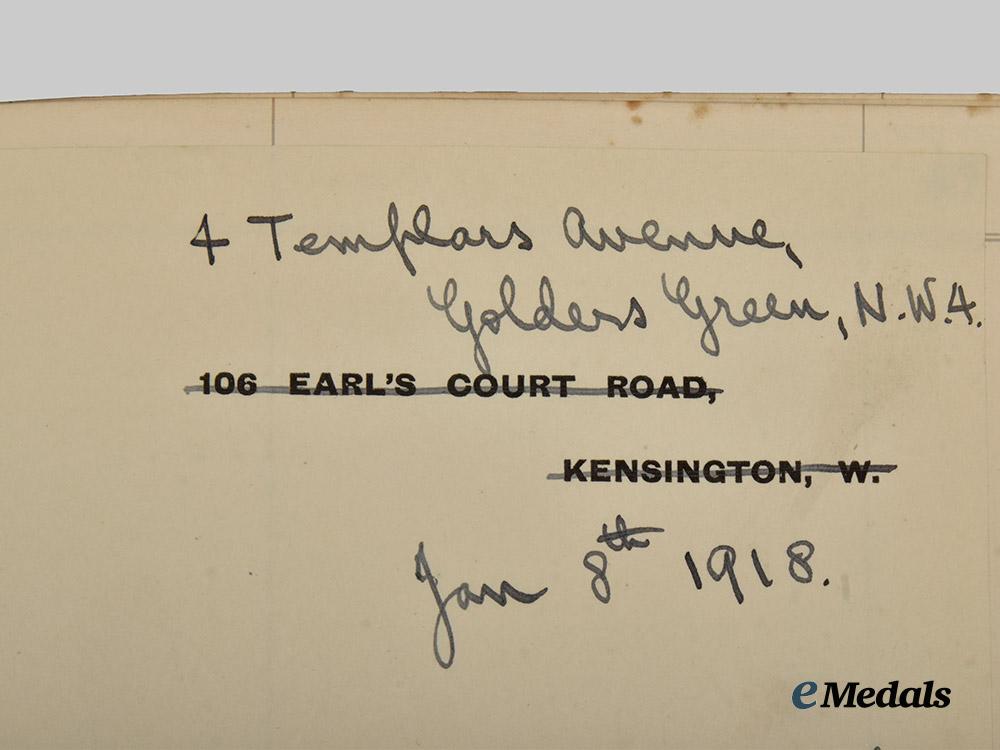 4 Templars Avenue,
Golders Green, N.W.4.
106 EARL'S COURT ROAD,
KENSINGTON, W.
Jan 8th 1918.
eMedals